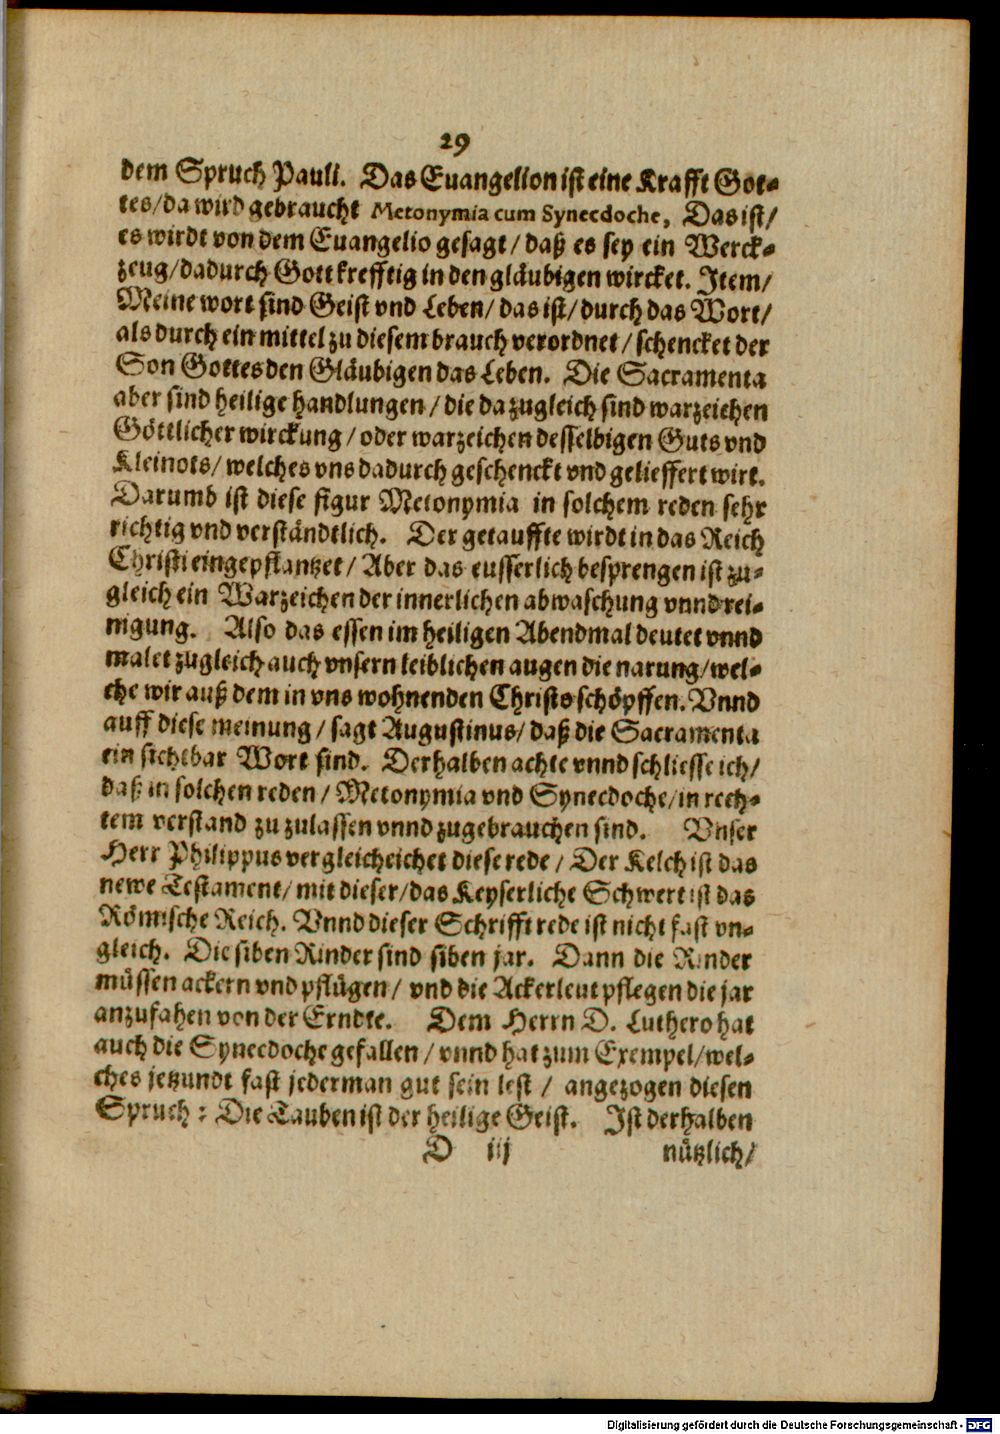 29
dem Spruch Pauli. Das Euangelion ist eine Krafft Got-
tes/da wird gebraucht Metonymia cum Synecdoche, Das ist/
es wirdt von dem Euangelio gesagt/daß es sey ein Werck-
zeug/dadurch Gott krefftig in den gläubigen wircket. Item/
Meine wort sind Geist vnd Leben/das ist/durch das Wort/
als durch ein mittel zu diesem brauch verordnet/schencket der
Son Gottes den Gläubigen das Leben. Die Sacramenta
aber sind heilige handlungen/die da zugleich sind warzeichen
Göttlicher wirckung/oder warzeichen desselbigen Guts vnd
Kleinots/welches vns dadurch geschenckt vnd gelieffert wirt.
Darumb ist diese figur Metonymia in solchem reden sehr
richtig vnd verständtlich. Der getauffte wirdt in das Reich
Christi eingepflantzet/Aber das eusserlich besprengen ist zu-
gleich ein Warzeichen der innerlichen abwaschung vnnd rei-
nigung. Also das essen im heiligen Abendmal deutet vnnd
malet zugleich auch vnsern leiblichen augen die narung/wel-
che wir auß dem in vns wohnenden Christo schöpffen. Vnnd
auff diese meinung/sagt Augustinus/daß die Sacramenta
ein sichtbar Wort sind. Derhalben achte vnnd schliesse ich/
daß in solchen reden/Metonymia vnd Synecdoche/in rech-
tem verstand zu zulassen vnnd zugebrauchen sind. Vnser
Herr Philippus vergleicheichet diese rede/Der Kelch ist das
newe Testament/mit dieser/das Keyserliche Schwert ist das
Römische Reich. Vnnd dieser Schrifft rede ist nicht fast vn-
gleich. Die siben Rinder sind siben jar. Dann die Rinder
müssen ackern vnd pflügen/vnd die Ackerleut pflegen die jar
anzufahen von der Erndte. Dem Herrn D. Luthero hat
auch die Synecdoche gefallen/vnnd hat zum Exempel/wel-
ches jetzundt fast jederman gut sein lest/angezogen diesen
Spruch: Die Tauben ist der heilige Geist. Ist derhalben
D iij nützlich/
Digitalisierung gefördert durch die Deutsche Forschungsgemeinschaft - DFG